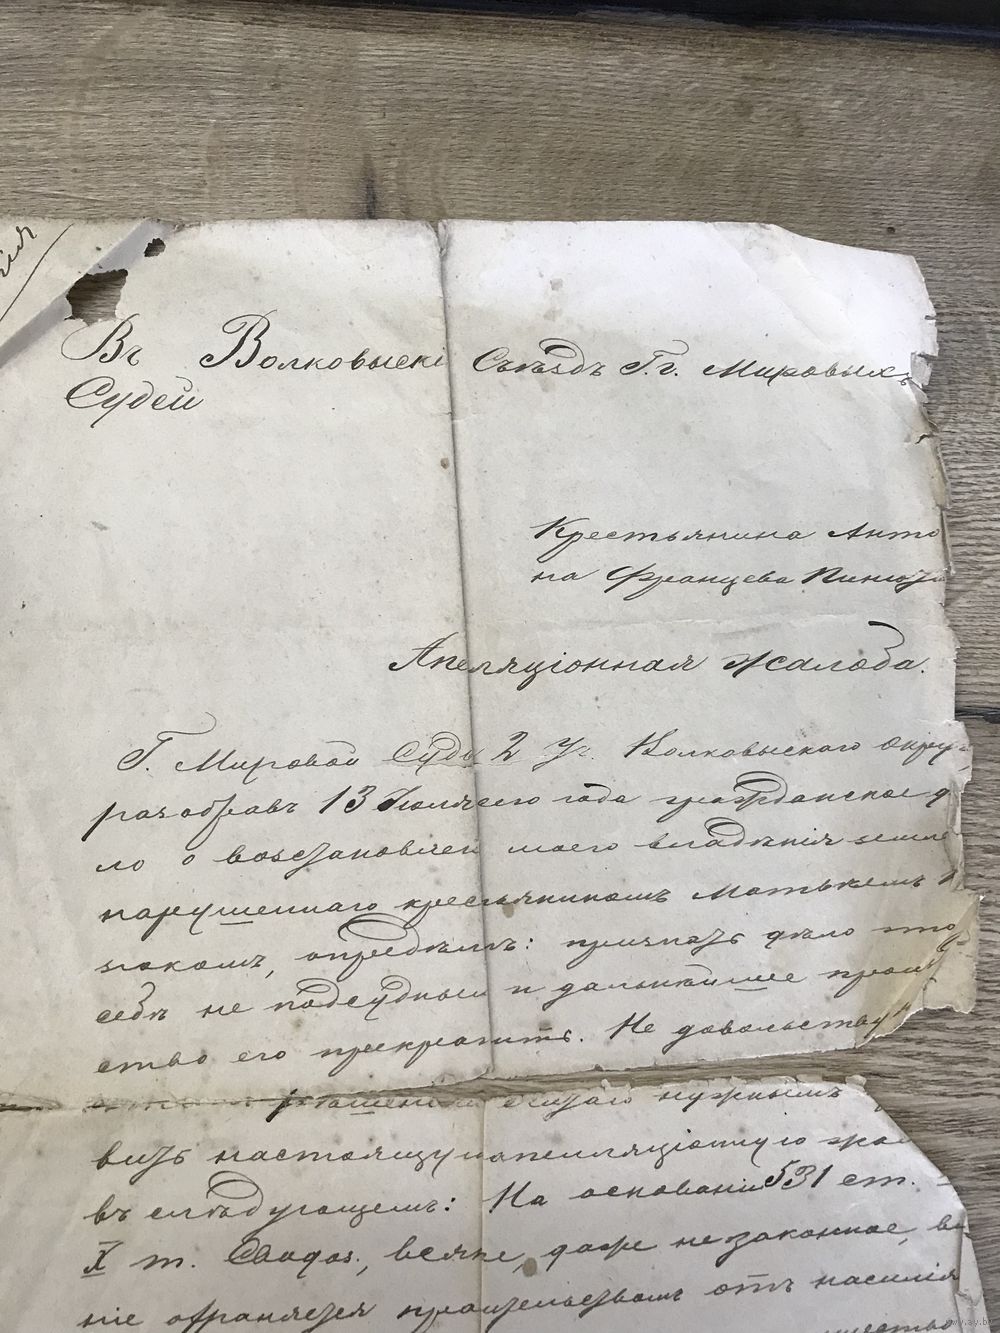 Въ Волковыскі Съѣздъ Г.г. Мировыхъ
Судей
Крестьянина Анто
на Францева
Апелляціонная жалоба.
Г. Мировой Судья 2 Уч. Волковыскаго Окру
разобравъ 13 Іюля сего года гражданское д
ло о возстановлен моего владѣнія земле
нарушеннаго крестьяниномъ Матвѣемъ
опредѣлилъ: признать дѣло это
себѣ не подсуднымъ и дальнѣйшее произ
ство его прекратить. Не довольству
рѣшеніемъ считаю нужнымъ
вить настоящую апелляціонную жал
въ слѣдующемъ: На основаніи 531 ст.
X т. Св. Зак., всякое, даже незаконное, вл
ніе охраняется правительствомъ отъ насилія
www.ay.by